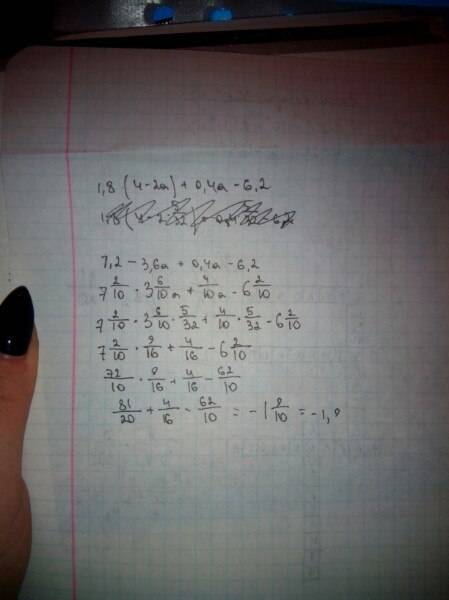 1,8 (4-2a) + 0,4a - 6,2
7,2 - 3,6a + 0,4a - 6,2
7 2/10 · 3 6/10 a + 4/10 a - 6 2/10
7 2/10 · 3 6/10 · 5/32 + 4/10 · 5/32 - 6 2/10
7 2/10 · 9/16 + 4/16 - 6 2/10
72/10 · 9/16 + 4/16 - 62/10
81/20 + 4/16 - 62/10 = -1 9/10 = -1,9